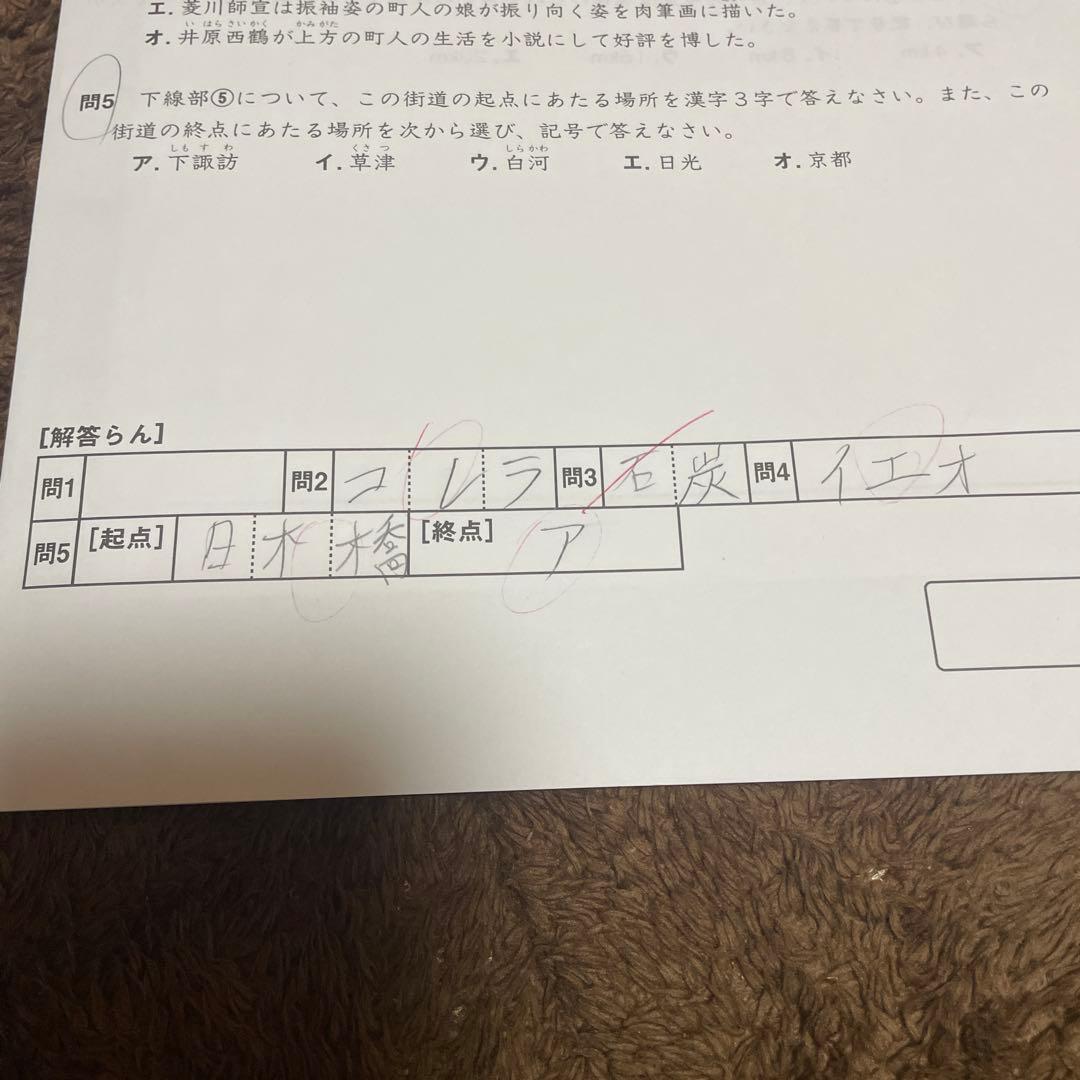 エ. 菱川師宣は振袖姿の町人の娘が振り向く姿を肉筆画に描いた。
い はら さい かく かみ がた
オ. 井原西鶴が上方の町人の生活を小説にして好評を博した。
問5 下線部⑤について、この街道の起点にあたる場所を漢字3字で答えなさい。また、この
街道の終点にあたる場所を次から選び、記号で答えなさい。
しも す わ くさ つ しらかわ
ア. 下諏訪 イ. 草津 ウ. 白河 エ. 日光 オ. 京都
[解答らん]
問1 問2 コレラ 問3 石炭 問4 イエオ
問5 [起点] 日本橋 [終点] ア